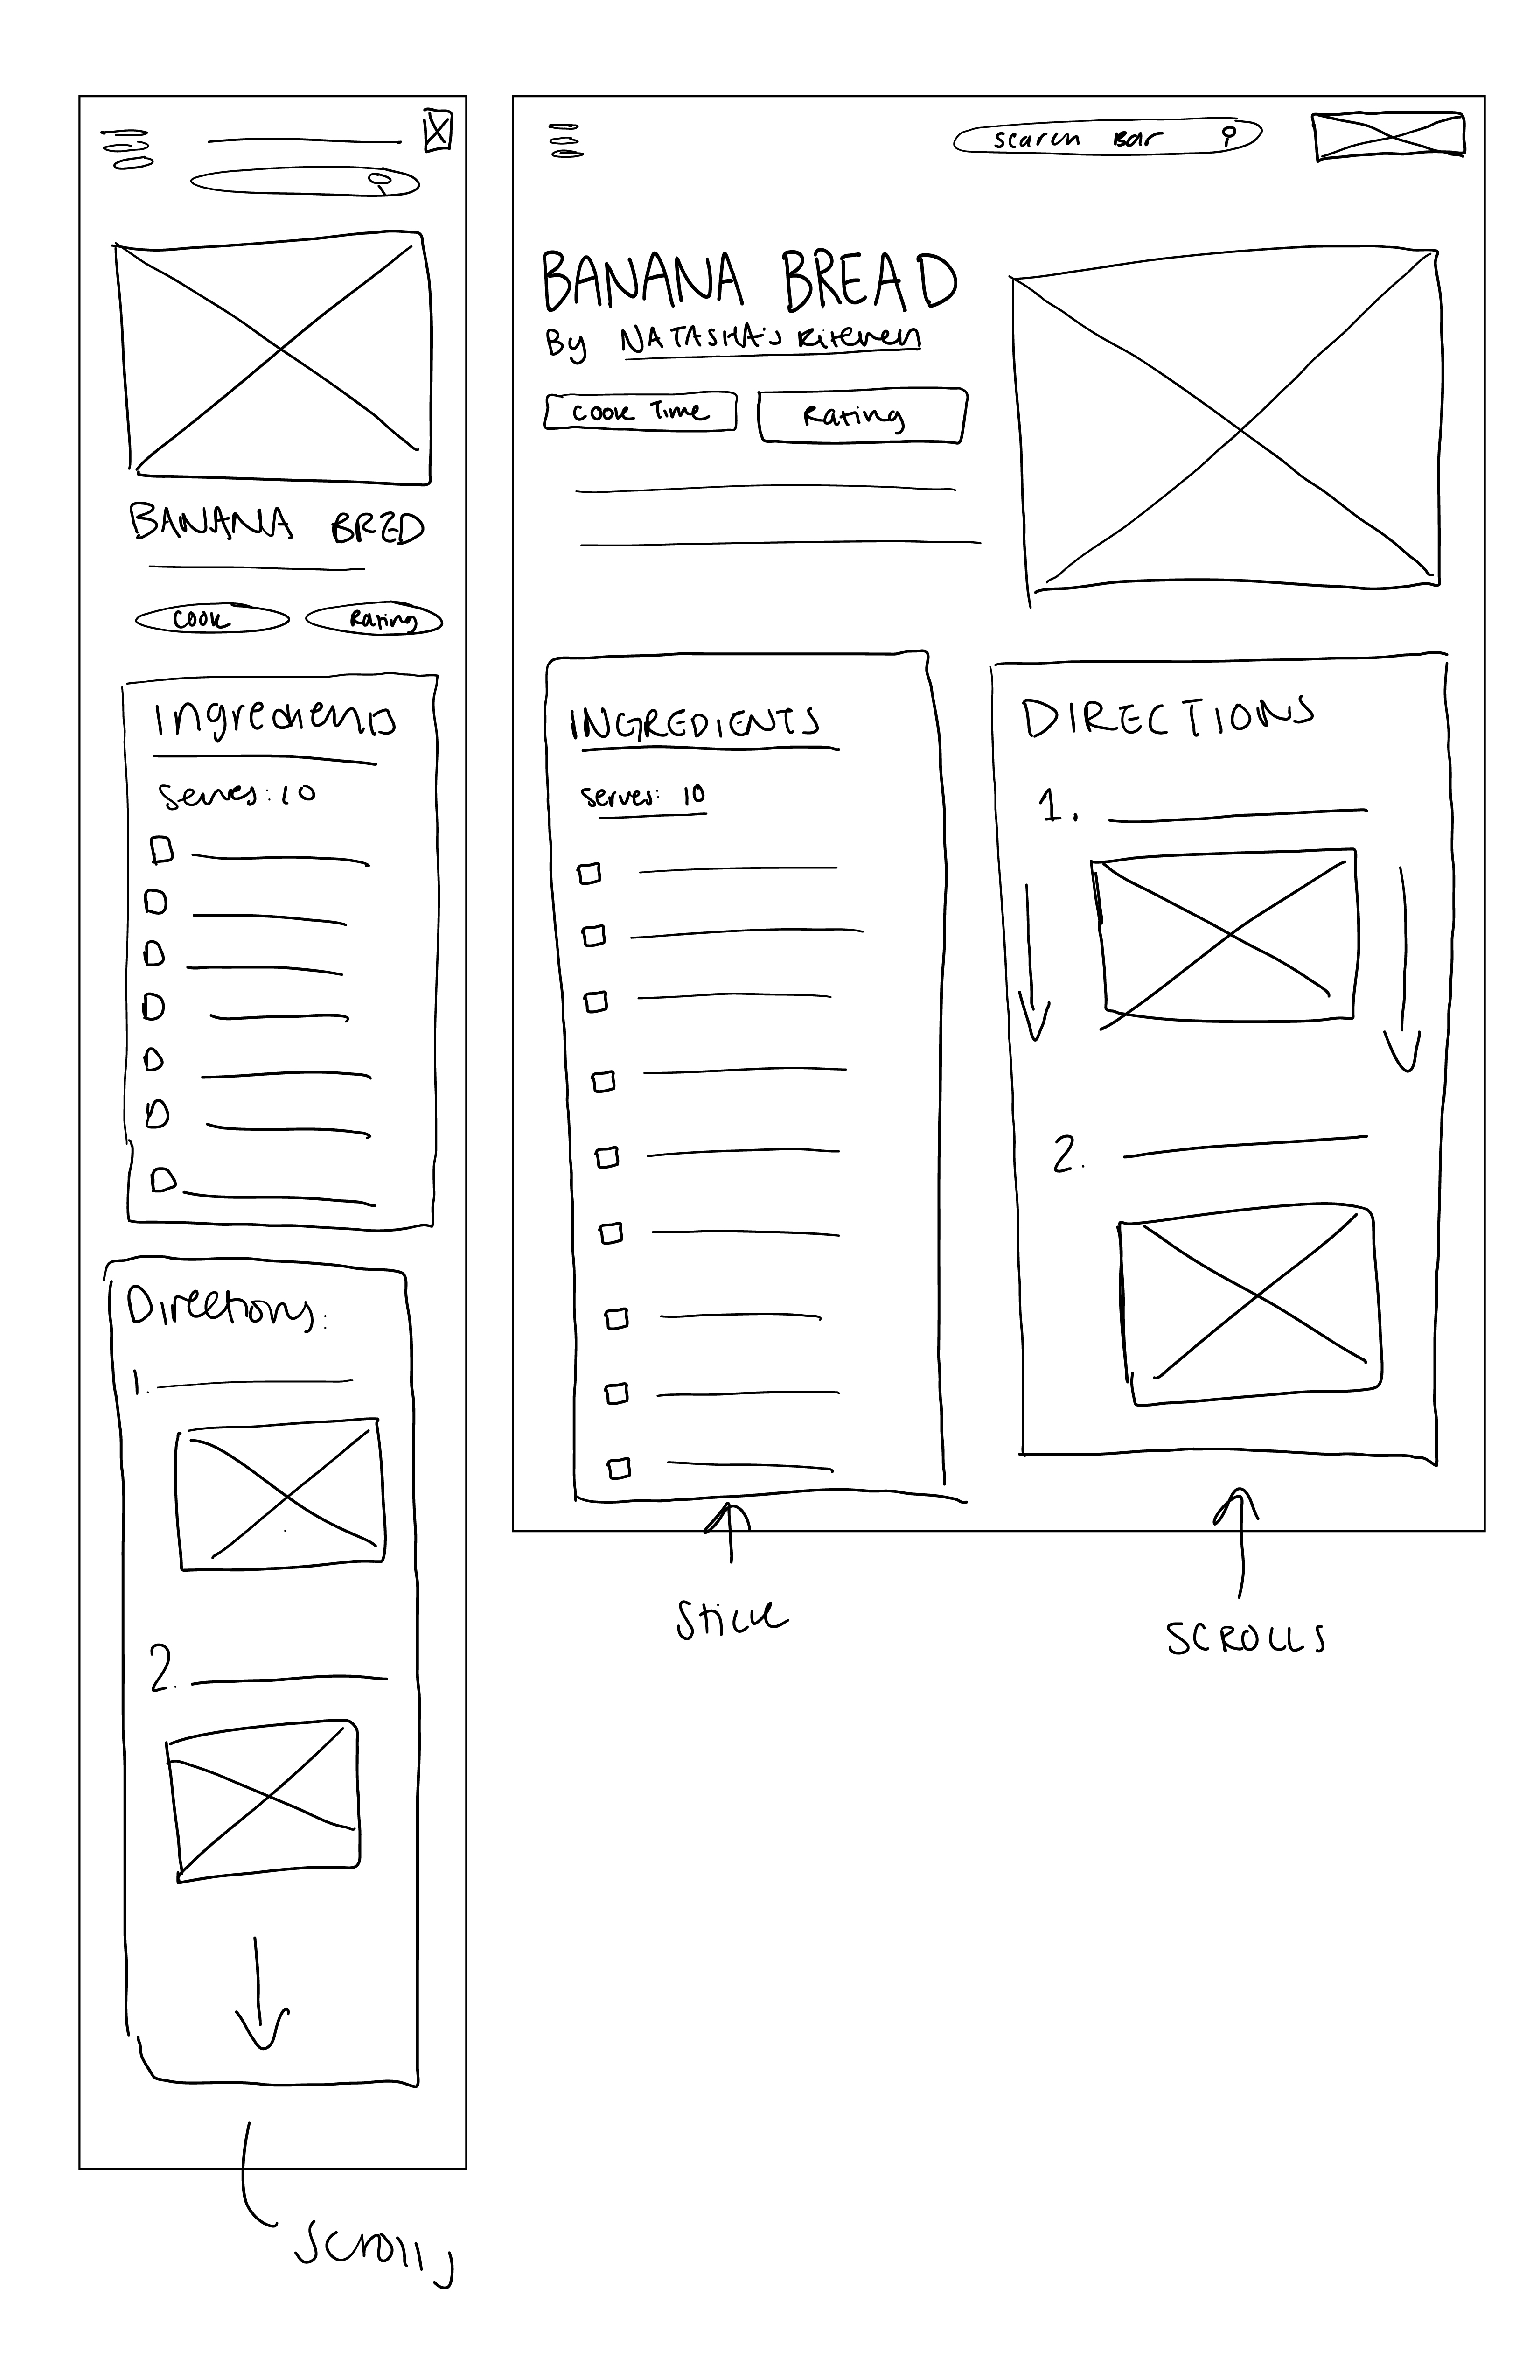 BANANA BRED
Cook
Rating
Ingredients
Serves: 10
Directions:
1.
2.
Scrolls
Search Bar
BANANA BREAD
By NATASHA's Kitchen
Cook Time
Rating
INGREDIENTS
Serves: 10
DIRECTIONS
1.
2.
Stick
SCROLLS